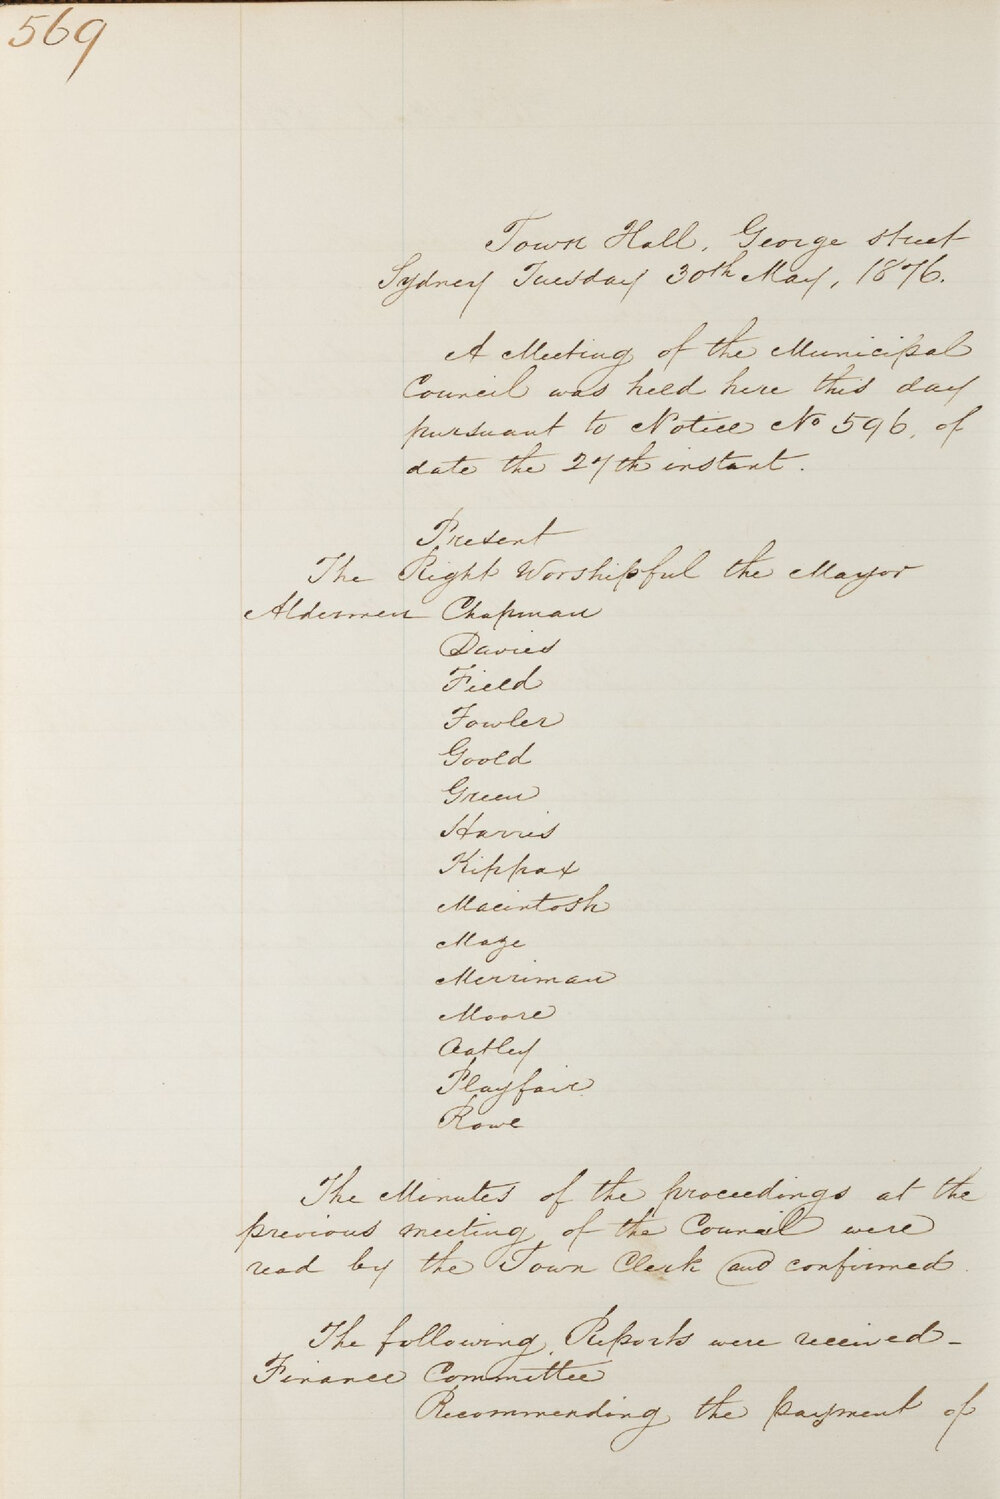 569
Town Hall, George street
Sydney Tuesday 30th May, 1876.
A Meeting of the Municipal
Council was held here this day
pursuant to Notice No 596, of
date the 27th instant.
Present
The Right Worshipful the Mayor
Aldermen Chapman
Davies
Field
Fowler
Goold
Green
Harris
Kippax
Macintosh
Maze
Merriman
Moore
Oatley
Playfair
Rowe
The Minutes of the proceedings at the
previous meeting of the Council were
read by the Town Clerk and confirmed.
The following Reports were received-
Finance Committee
Recommending the payment of